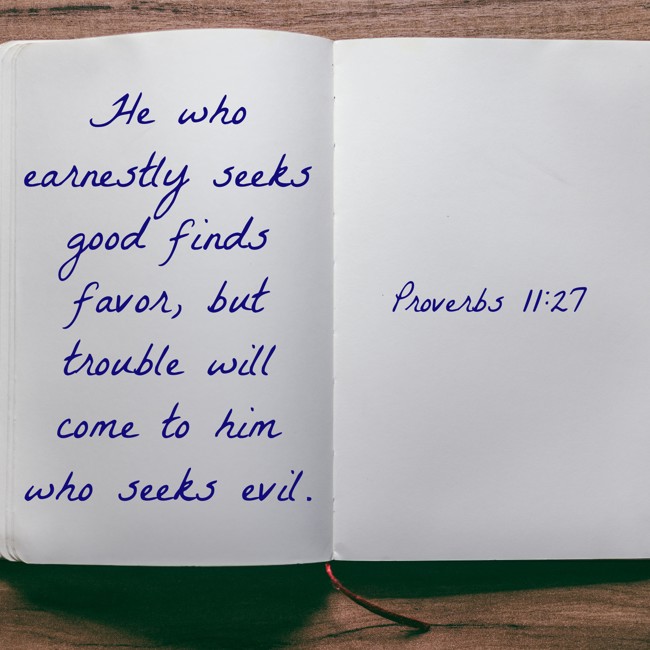 He who
earnestly seeks
good finds
favor, but
trouble will
come to him
who seeks evil.
Proverbs 11:27